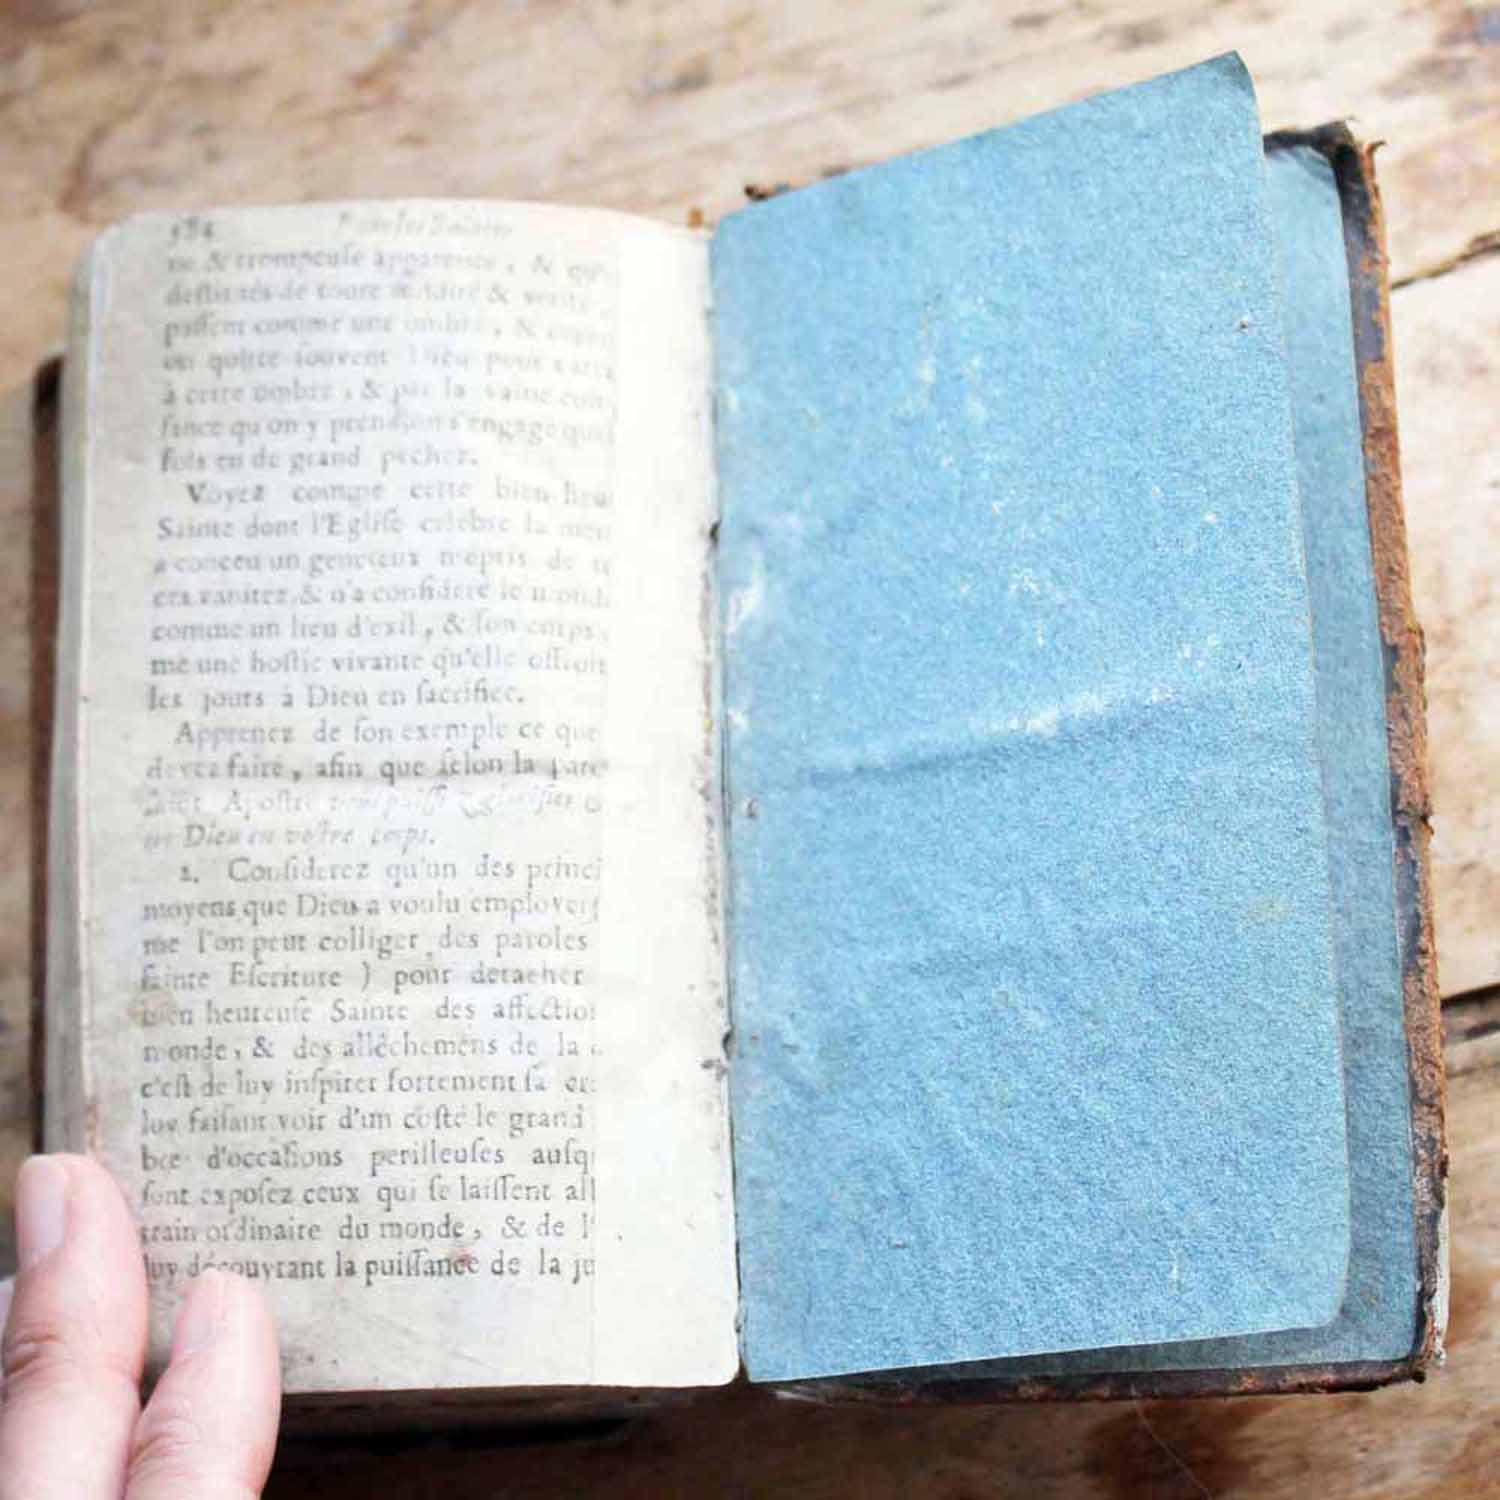 ne & trompeuſe apparence, &
paſſent comme une ombre, &
on quitte ſouvent Dieu pour
à cette ombre, & par la vaine
fiance qu'on y prend, on s'engage
fois en de grand pechez.
Voyez comme cette bien-heu
Sainte dont l'Egliſe celebre la
a conceu un genereux mépris de
ces vanitez, & n'a conſideré le
comme un lieu d'exil, & ſon corps
me une hoſtie vivante qu'elle offroit
les jours à Dieu en ſacrifice.
Apprenez de ſon exemple ce que
devez faire, afin que ſelon la
Apoſtre
Dieu en voſtre corps.
2. Conſiderez qu'un des princi
moyens que Dieu a voulu employer
me l'on peut colliger des paroles
ſainte Eſcriture ) pour detacher
bien heureuſe Sainte des affection
monde, & des allêchemẽns de la
c'eſt de luy inſpirer fortement ſa
luy faiſant voir d'un coſté le grand
bre d'occaſions perilleuſes auſq
ſont expoſez ceux qui ſe laiſſent all
train ordinaire du monde, & de l'
luy découvrant la puiſſance de la